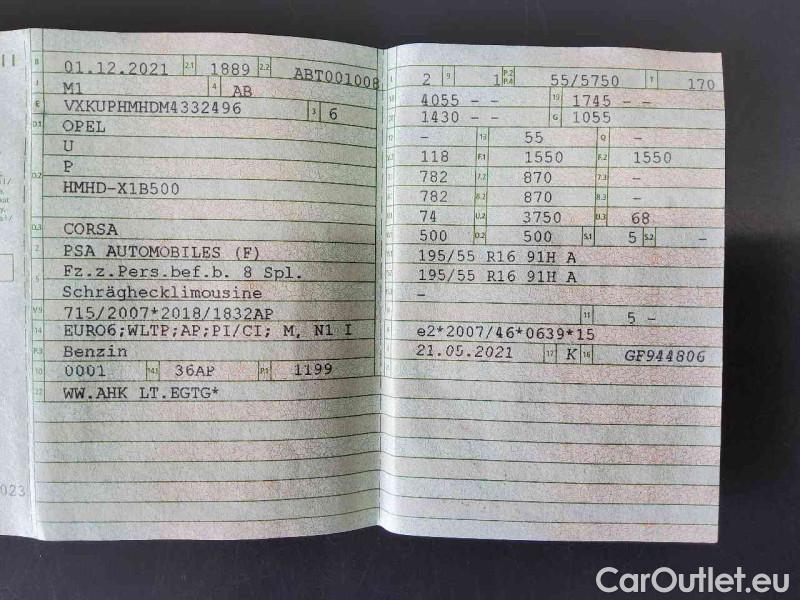 B 01.12.2021 2.1 1889 2.2 ABT001008
J M1 4 AB
E VXKUPHMHDM4332496 3 6
D.1 OPEL
U
D.2 P
HMHD-X1B500
D.3 CORSA
2 PSA AUTOMOBILES (F)
5 Fz.z.Pers.bef.b. 8 Spl.
Schräghecklimousine
V.9 715/2007*2018/1832AP
14 EURO6;WLTP;AP;PI/CI; M, N1 I
P.3 Benzin
10 0001 14.1 36AP P.1 1199
22 WW.AHK LT.EGTG*
L 2 9 1 P.2 P.4 55/5750 T 170
18 4055 - - 19 1745 - -
1430 - - G 1055
12 - 13 55 Q -
V.7 118 F.1 1550 F.2 1550
7.1 782 7.2 870 7.3 -
8.1 782 8.2 870 8.3 -
U.1 74 U.2 3750 U.3 68
O.1 500 O.2 500 S.1 5 S.2 -
15.1 195/55 R16 91H A
15.2 195/55 R16 91H A
15.3 -
R 11 5 -
K e2*2007/46*0639*15
6 21.05.2021 17 K 16 GF944806
023
CarOutlet.eu